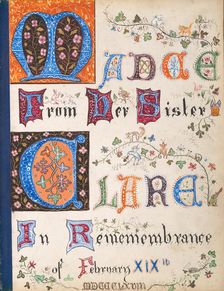 MADGE
From Her Sister
CLARE
In Remembrance
of February XIXth